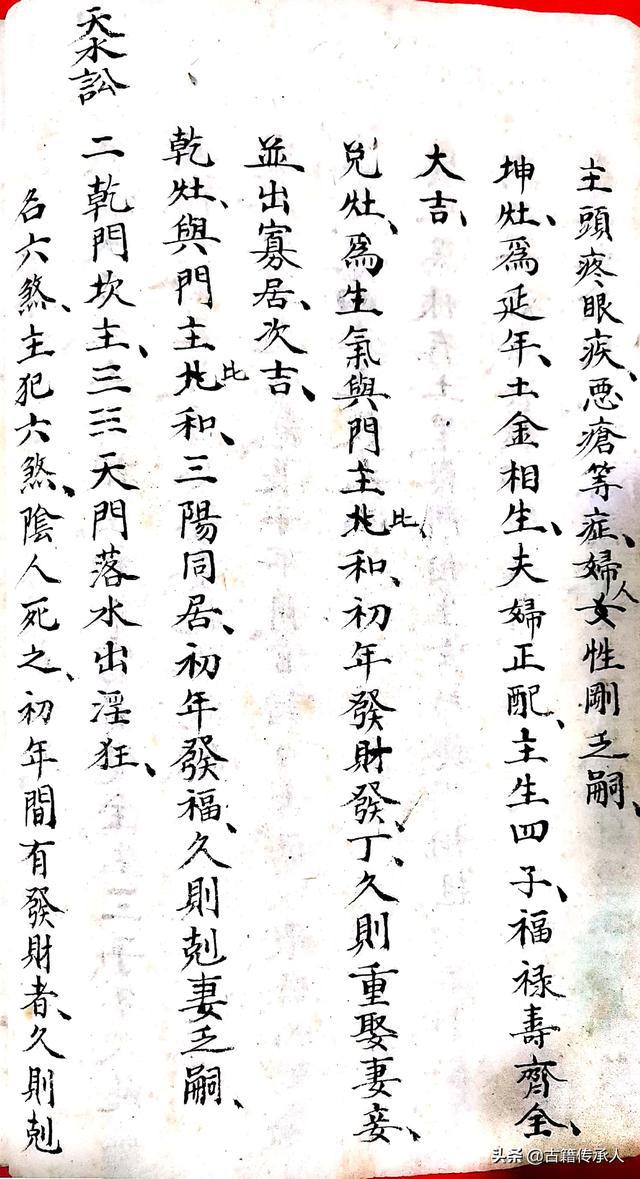 主頭疼眼疾、惡瘡等症、婦人女性剛乏嗣、
坤灶、爲延年、土金相生、夫婦正配、主生四子、福禄壽齊全、
大吉、
兌灶、爲生氣與門主比和、初年發財發丁、久則重娶妻妾、
並出寡居、次吉、
乾灶、與門主比和、三陽同居、初年發福、久則剋妻乏嗣、
天水訟
二乾門坎主、☰☵天門落水出淫狂、
名六煞、主犯六煞、陰人死之、初年間有發財者、久則剋
头条 @古籍传承人